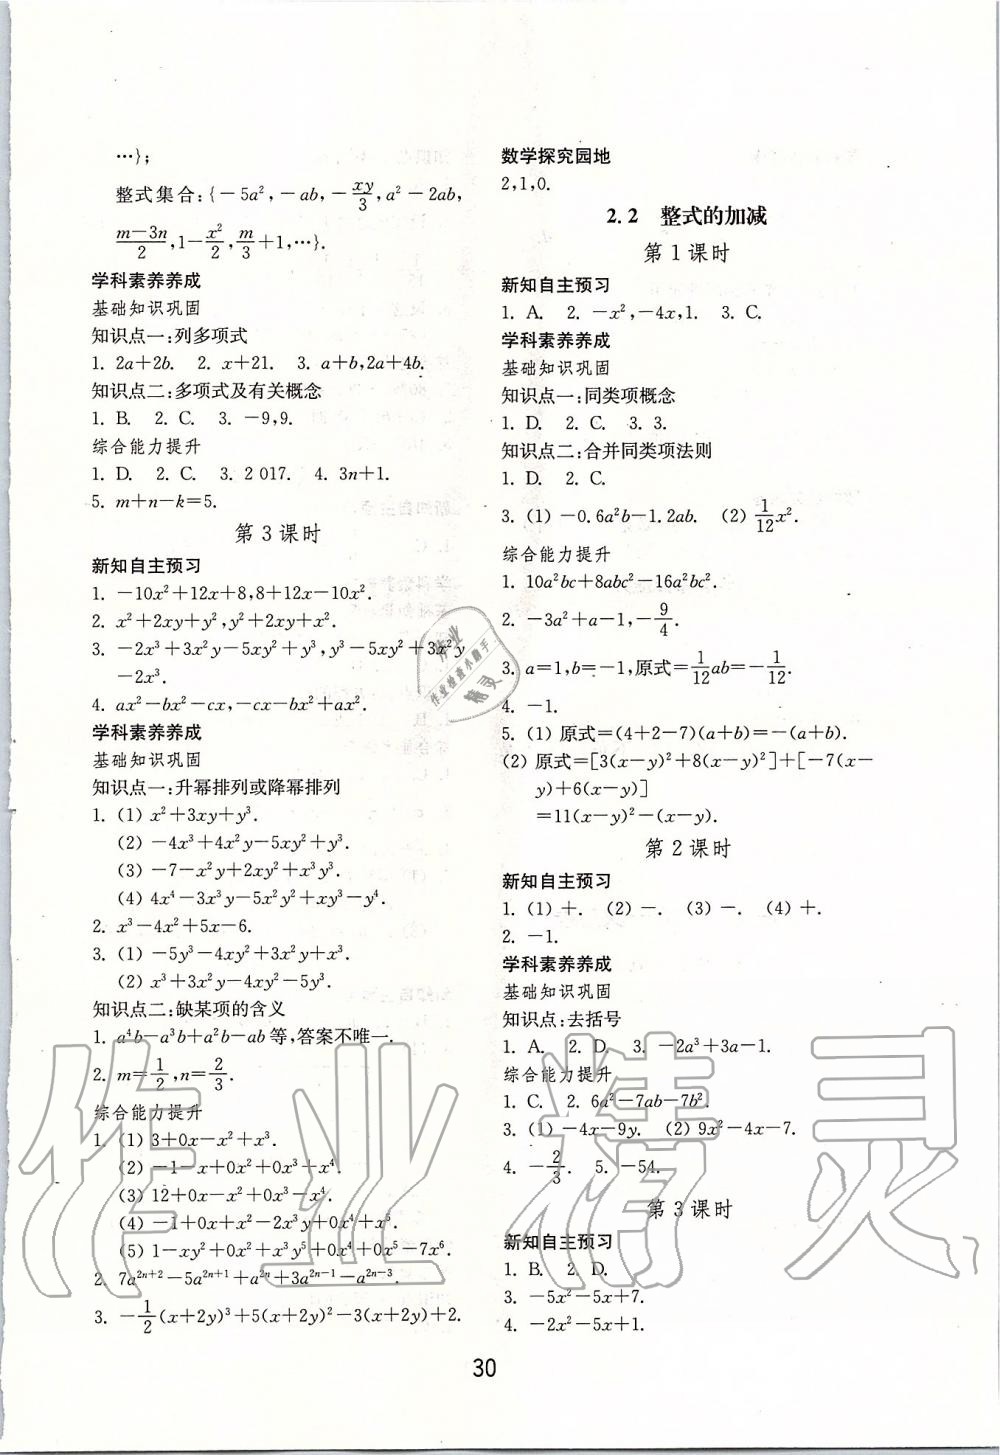 …};
整式集合:{-5a²,-ab,-xy/3,a²-2ab,
(m-3n)/2,1-x²/2,m/3+1,…}.
学科素养养成
基础知识巩固
知识点一:列多项式
1. 2a+2b. 2. x+21. 3. a+b,2a+4b.
知识点二:多项式及有关概念
1. B. 2. C. 3. -9,9.
综合能力提升
1. D. 2. C. 3. 2 017. 4. 3n+1.
5. m+n-k=5.
第3课时
新知自主预习
1. -10x²+12x+8,8+12x-10x².
2. x²+2xy+y²,y²+2xy+x².
3. -2x³+3x²y-5xy²+y³,y³-5xy²+3x²y
-2x³.
4. ax²-bx²-cx,-cx-bx²+ax².
学科素养养成
基础知识巩固
知识点一:升幂排列或降幂排列
1. (1) x²+3xy+y³.
(2) -4x³+4x²y-5xy²+y³.
(3) -7-x²y+2xy²+x³y³.
(4) 4x⁴-3x³y-5x²y²+xy³-y⁴.
2. x³-4x²+5x-6.
3. (1) -5y³-4xy²+3x²y+x³.
(2) x³+3x²y-4xy²-5y³.
知识点二:缺某项的含义
1. a⁴b-a³b+a²b-ab等,答案不唯一.
2. m=1/2,n=2/3.
综合能力提升
1. (1) 3+0x-x²+x³.
(2) -1-x+0x²+0x³+x⁴.
(3) 12+0x-x²+0x³-x⁴.
(4) -1+0x+x²-2x³y+0x⁴+x⁵.
(5) 1-xy²+0x²+x³y⁵+0x⁴+0x⁵-7x⁶.
2. 7a²ⁿ⁺²-5a²ⁿ⁺¹+a²ⁿ+3a²ⁿ⁻¹-a²ⁿ⁻³.
3. -1/2(x+2y)³+5(x+2y)²-3(x+2y)+2.
数学探究园地
2,1,0.
2.2 整式的加减
第1课时
新知自主预习
1. A. 2. -x²,-4x,1. 3. C.
学科素养养成
基础知识巩固
知识点一:同类项概念
1. D. 2. C. 3. 3.
知识点二:合并同类项法则
1. D. 2. C.
3. (1) -0.6a²b-1.2ab. (2) 1/12x².
综合能力提升
1. 10a²bc+8abc²-16a²bc².
2. -3a²+a-1,-9/4.
3. a=1,b=-1,原式=1/12ab=-1/12.
4. -1.
5. (1) 原式=(4+2-7)(a+b)=-(a+b).
(2) 原式=[3(x-y)²+8(x-y)²]+[-7(x-
y)+6(x-y)]
=11(x-y)²-(x-y).
第2课时
新知自主预习
1. (1) +. (2) -. (3) -. (4) +.
2. -1.
学科素养养成
基础知识巩固
知识点:去括号
1. A. 2. D. 3. -2a³+3a-1.
综合能力提升
1. C. 2. 6a²-7ab-7b².
3. (1) -4x-9y. (2) 9x²-4x-7.
4. -2/3. 5. -54.
第3课时
新知自主预习
1. B. 2. D.
3. -5x²-5x+7.
4. -2x²-5x+1.
30
作业
作业检查小助手
精灵
作业精灵